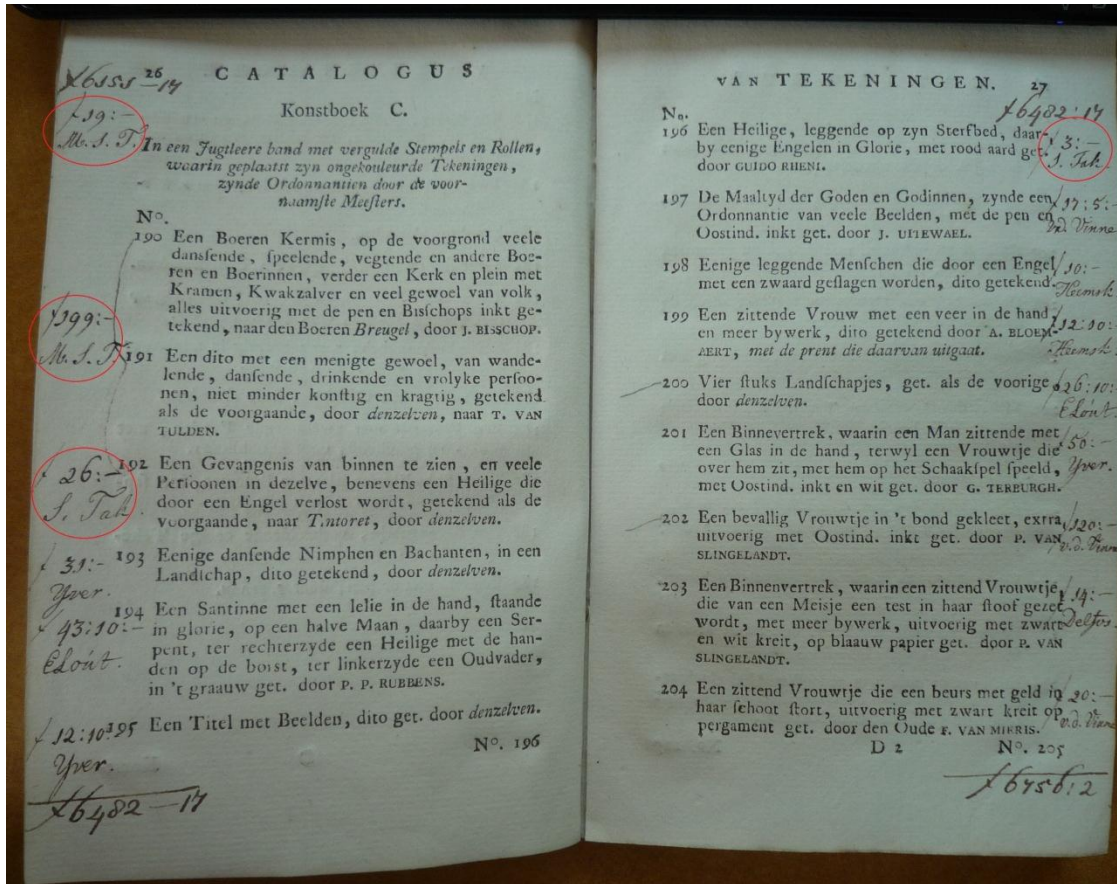 f6151—17
26
CATALOGUS
Konstboek C.
f 19:-
M. S. T.
In een Jugtleere band met vergulde Stempels en Rollen,
waarin geplaatst zyn ongekouleurde Tekeningen,
zynde Ordonnantien door de voor-
naamſte Meeſters.
No.
190 Een Boeren Kermis, op de voorgrond veele
danſende, ſpeelende, vegtende en andere Boe-
ren en Boerinnen, verder een Kerk en plein met
Kramen, Kwakzalver en veel gewoel van volk,
alles uitvoerig met de pen en Bisſchops inkt ge-
tekend, naar den Boeren Breugel, door J. BISSCHOP.
f199:-
M. S. T.
191 Een dito met een menigte gewoel, van wande-
lende, danſende, drinkende en vrolyke perſoo-
nen, niet minder konſtig en kragtig, getekend
als de voorgaande, door denzelven, naar T. VAN
TULDEN.
f 26:-
S. Tak
192 Een Gevangenis van binnen te zien, en veele
Perſoonen in dezelve, benevens een Heilige die
door een Engel verlost wordt, getekend als de
voorgaande, naar Tintoret, door denzelven.
f 31:-
Yver.
193 Eenige danſende Nimphen en Bachanten, in een
Landſchap, dito getekend, door denzelven.
f 43:10:-
ELoút.
194 Een Santinne met een lelie in de hand, ſtaande
in glorie, op een halve Maan, daarby een Ser-
pent, ter rechterzyde een Heilige met de han-
den op de borst, ter linkerzyde een Oudvader,
in 't graauw get. door P. P. RUBBENS.
f 12:10
Yver.
195 Een Titel met Beelden, dito get. door denzelven.
No. 196
f6482—17
VAN TEKENINGEN. 27
f6482:17
No.
196 Een Heilige, leggende op zyn Sterfbed, daar-
by eenige Engelen in Glorie, met rood aard get.
door GUIDO RHENI.
f 3:-
S. Tak.
197 De Maaltyd der Goden en Godinnen, zynde een
Ordonnantie van veele Beelden, met de pen en
Oostind. inkt get. door J. UITEWAEL.
f 17:5:-
v.d. Vinne
198 Eenige leggende Menſchen die door een Engel
met een zwaard geſlagen worden, dito getekend.
f 10:-
Heemsk
199 Een zittende Vrouw met een veer in de hand
en meer bywerk, dito getekend door A. BLOEM-
AERT, met de prent die daarvan uitgaat.
f 12:10:
Heemsk.
200 Vier ſtuks Landſchapjes, get. als de voorige
door denzelven.
f 26:10:
ELoút
201 Een Binnevertrek, waarin een Man zittende met
een Glas in de hand, terwyl een Vrouwtje die
over hem zit, met hem op het Schaakſpel ſpeeld,
met Oostind. inkt en wit get. door G. TERBURGH.
f 50:-
Yver.
202 Een bevallig Vrouwtje in 't bond gekleet, extra
uitvoerig met Oostind. inkt get. door P. VAN
SLINGELANDT.
f120:-
v.d. Vinne
203 Een Binnenvertrek, waarin een zittend Vrouwtje,
die van een Meisje een test in haar ſtoof gezet
wordt, met meer bywerk, uitvoerig met zwart
en wit kreit, op blaauw papier get. door P. VAN
SLINGELANDT.
f 14:-
Delfos
204 Een zittend Vrouwtje die een beurs met geld in
haar ſchoot ſtort, uitvoerig met zwart kreit op
pergament get. door den Oude F. VAN MIERIS.
f 20:-
v.d. Vinne
D 2 No. 205
f6756:2